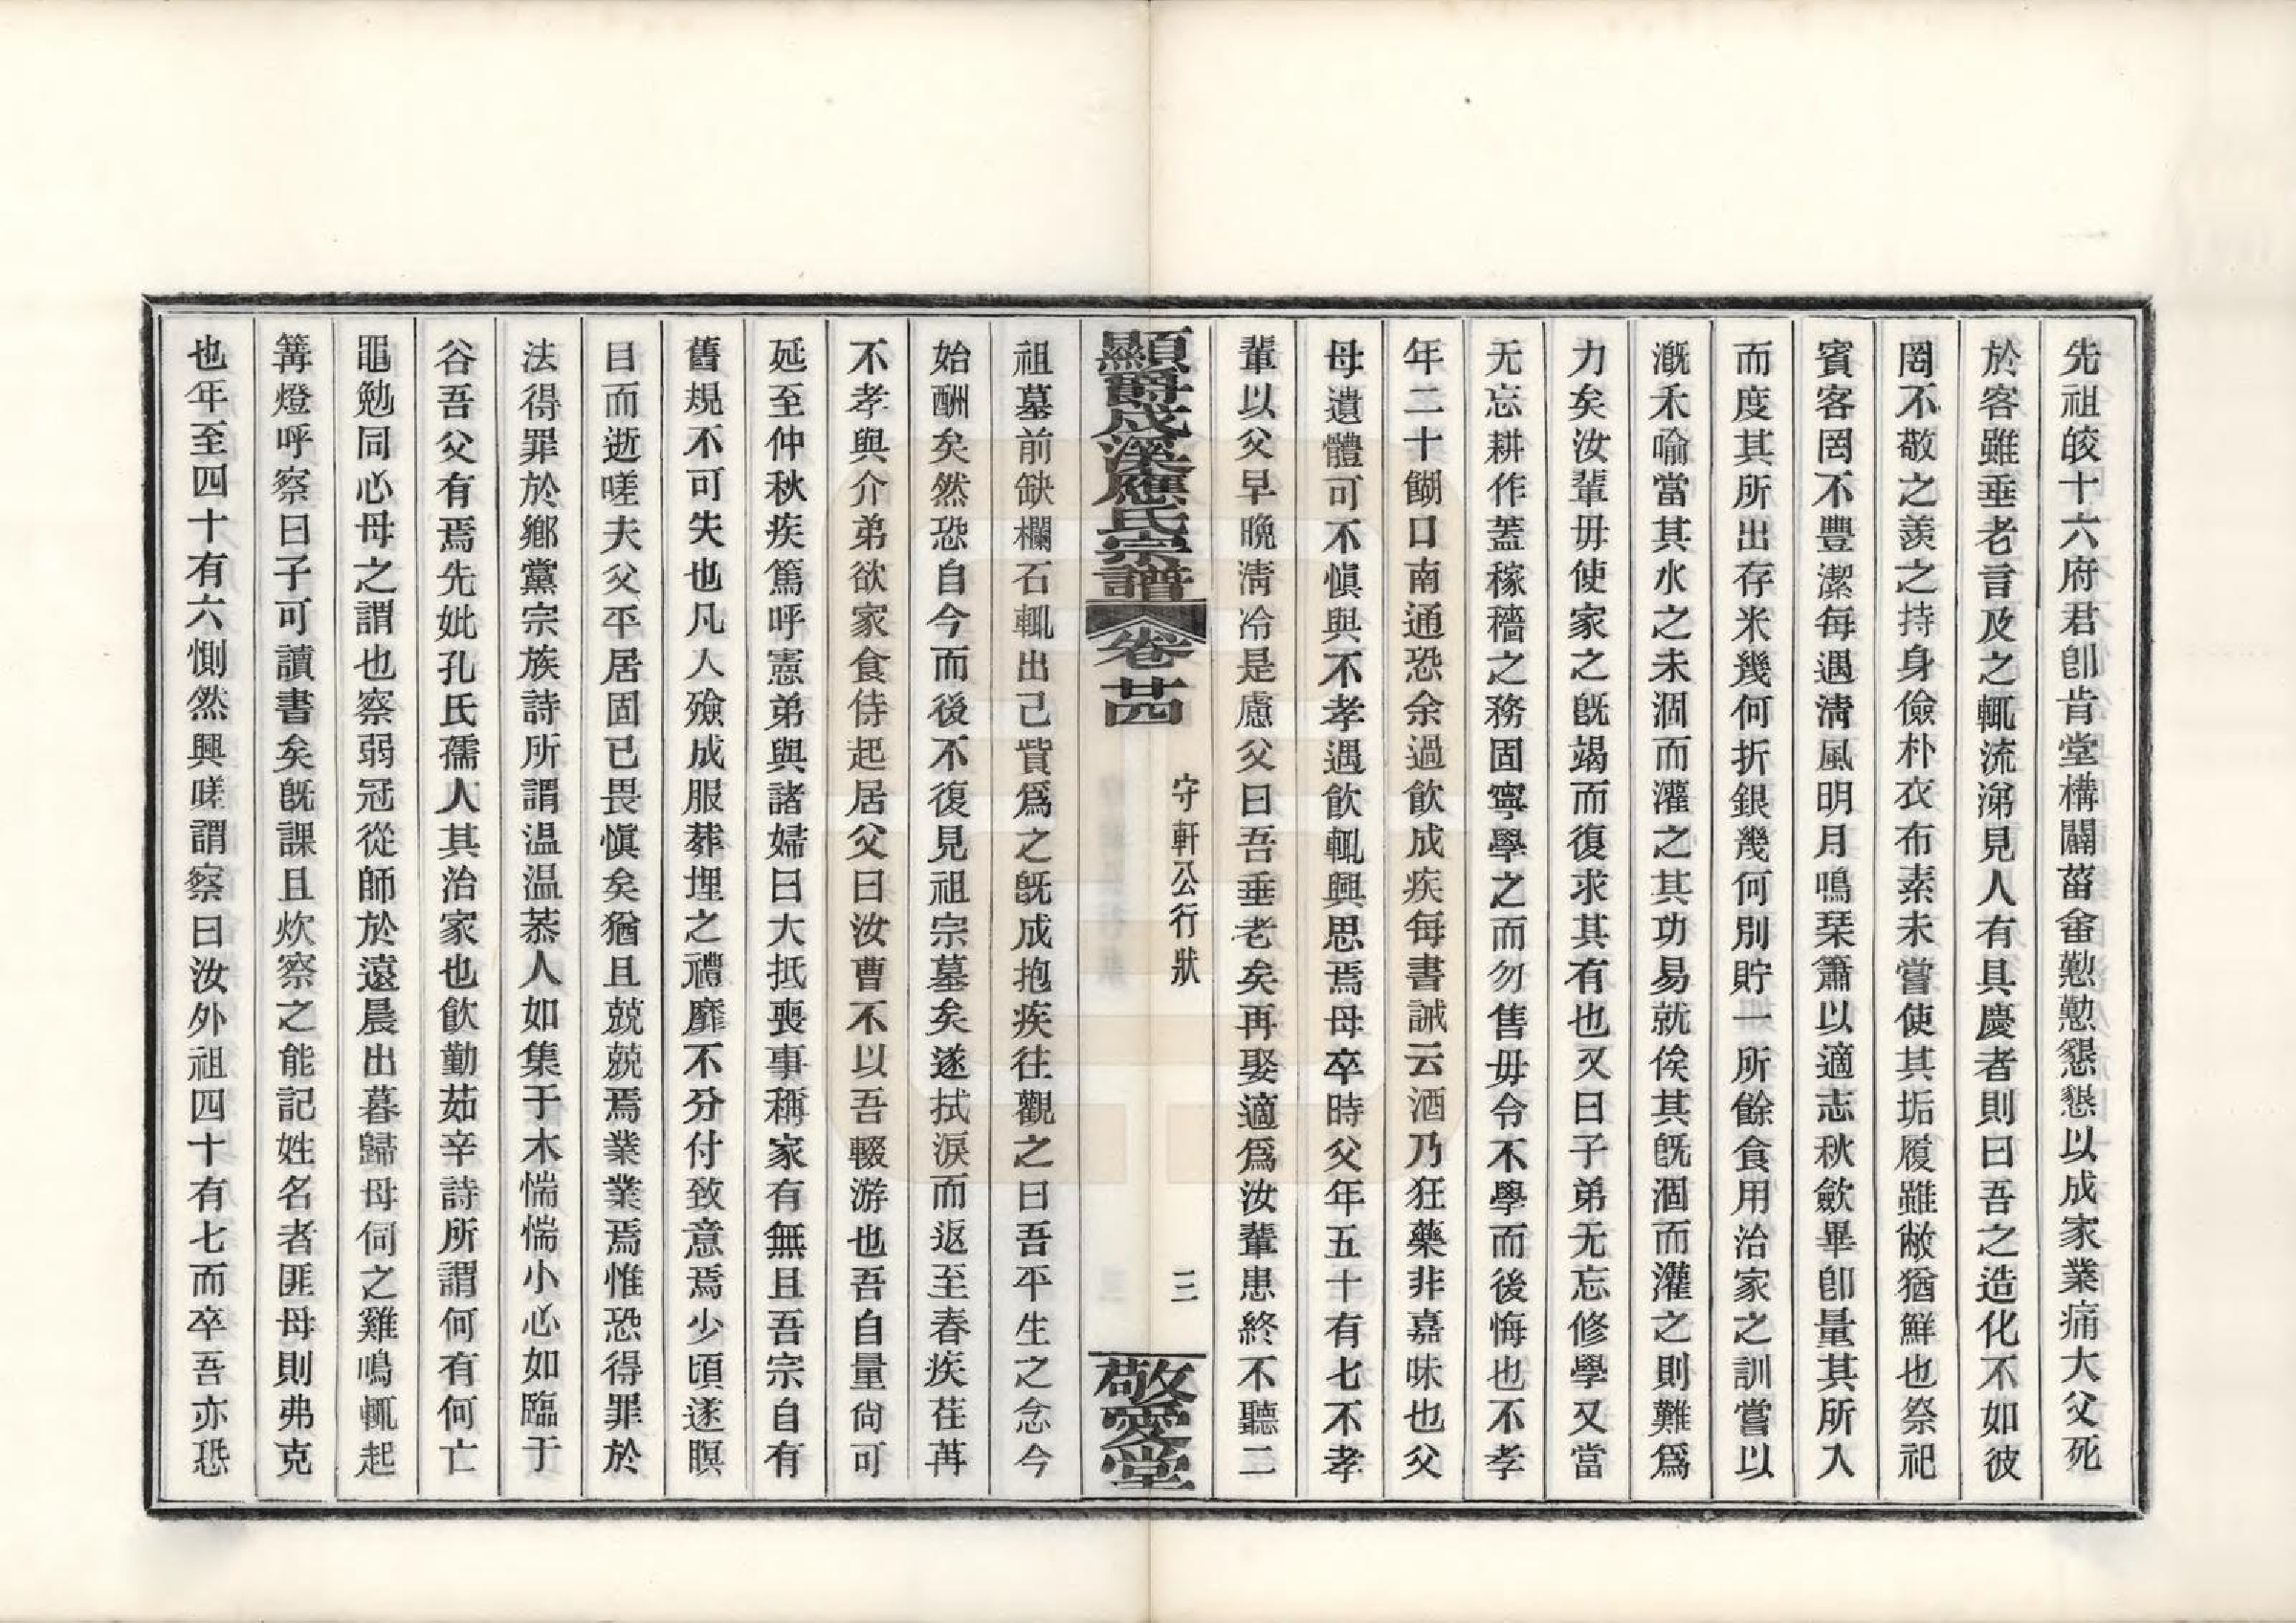 先祖皎十六府君卽肯堂構闢菑畬懃懃懇懇以成家業痛大父死
於客雖垂老言及之輒流涕見人有具慶者則曰吾之造化不如彼
罔不敬之羨之持身儉朴衣布素未嘗使其垢履雖敝猶鮮也祭祀
賓客罔不豐潔每遇淸風明月鳴琹簫以適志秋歛畢卽量其所入
而度其所出存米幾何折銀幾何別貯一所餘食用治家之訓嘗以
漑禾喻當其水之未涸而灌之其功易就俟其旣涸而灌之則難爲
力矣汝輩毋使家之旣竭而復求其有也又曰子弟无忘修學又當
无忘耕作蓋稼穡之務固寧學之而勿售毋令不學而後悔也不孝
年二十餬口南通恐余過飮成疾每書誡云酒乃狂藥非嘉味也父
母遺體可不愼與不孝遇飮輒興思焉母卒時父年五十有七不孝
輩以父早晩淸冷是慮父曰吾垂老矣再娶適爲汝輩患終不聽二
顯爵成溪應氏宗譜
卷廿四
守軒公行狀
三
敬愛堂
祖墓前缺欄石輒出己貲爲之旣成抱疾往觀之曰吾平生之念今
始酬矣然恐自今而後不復見祖宗墓矣遂拭淚而返至春疾荏苒
不孝與介弟欲家食侍起居父曰汝曹不以吾輟游也吾自量尙可
延至仲秋疾篤呼憲弟與諸婦曰大抵喪事稱家有無且吾宗自有
舊規不可失也凡人殮成服葬埋之禮靡不分付致意焉少頃遂瞑
目而逝嗟夫父平居固已畏愼矣猶且兢兢焉業業焉惟恐得罪於
法得罪於鄕黨宗族詩所謂温温恭人如集于木惴惴小心如臨于
谷吾父有焉先妣孔氏孺人其治家也飮勤茹辛詩所謂何有何亡
黽勉同心母之謂也察弱冠從師於遠晨出暮歸母伺之雞鳴輒起
篝燈呼察曰子可讀書矣旣課且炊察之能記姓名者匪母則弗克
也年至四十有六惻然興嗟謂察曰汝外祖四十有七而卒吾亦恐